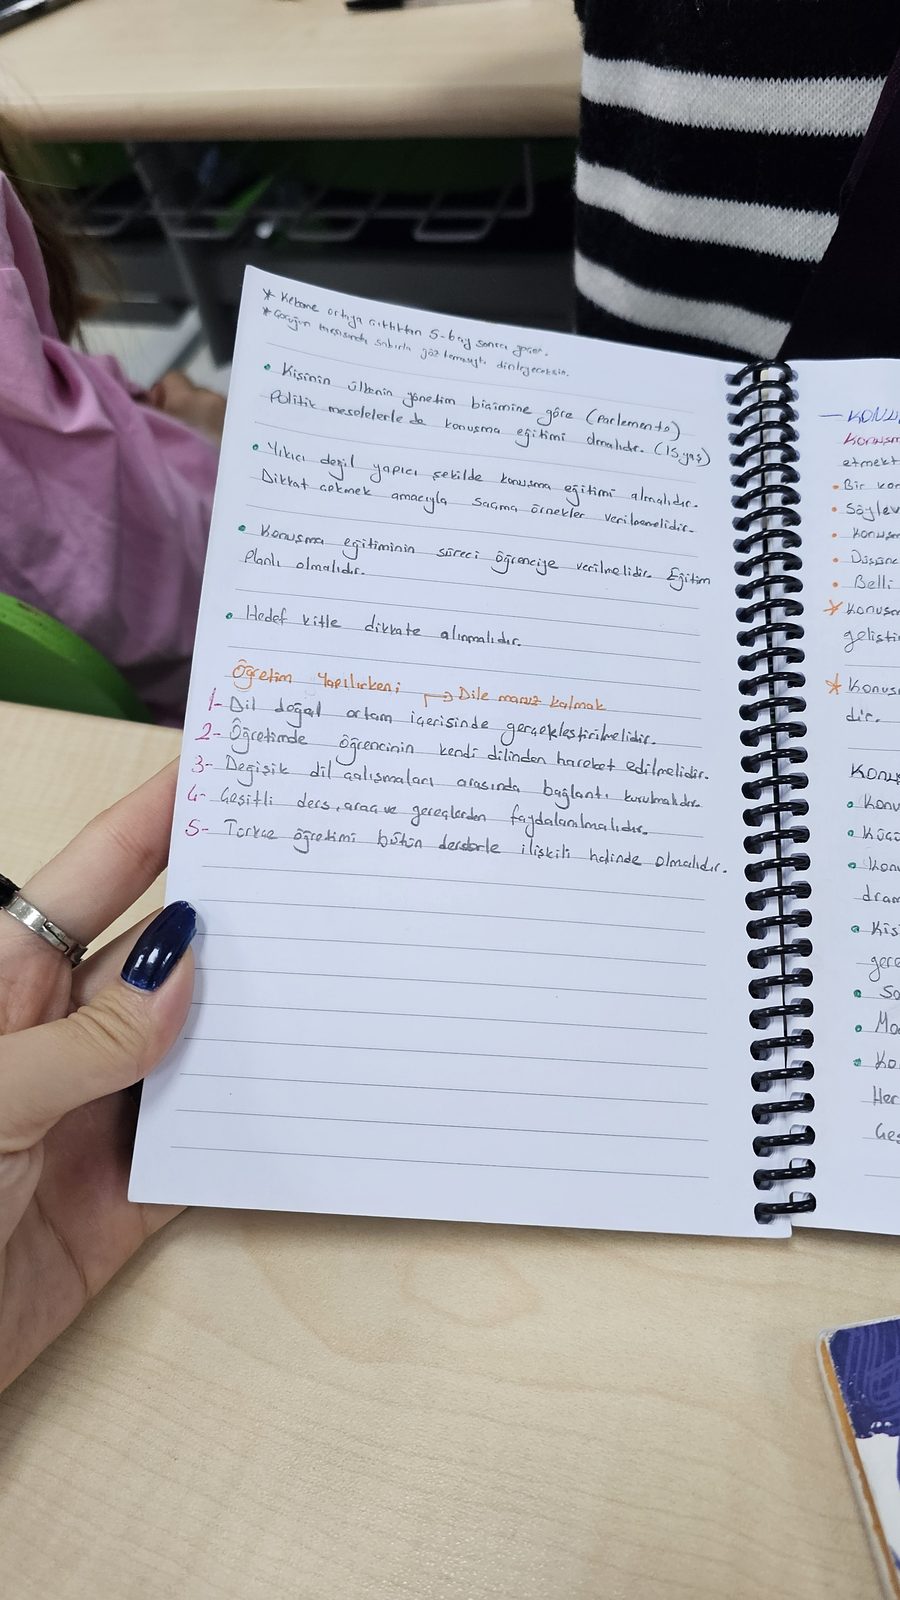 * Kekeme ortaya çıktıktan 5-6 ay sonra geçer.
* Çocuğun karşısında sabırla göz temasıyla dinleyeceksin.
• Kişinin ülkenin yönetim biçimine göre (parlemento)
Politik meselelerle de konuşma eğitimi olmalıdır. (15 yaş)
• Yıkıcı değil yapıcı şekilde konuşma eğitimi almalıdır.
Dikkat çekmek amacıyla saçma örnekler verilmemelidir.
• Konuşma eğitiminin süreci öğrenciye verilmelidir. Eğitim
Planlı olmalıdır.
• Hedef kitle dikkate alınmalıdır.
Öğretim Yapılırken;
→ Dile maruz kalmak
1- Dil doğal ortam içerisinde gerçekleştirilmelidir.
2- Öğretimde öğrencinin kendi dilinden hareket edilmelidir.
3- Değişik dil çalışmaları arasında bağlantı kurulmalıdır.
4- Çeşitli ders, araç ve gereçlerden faydalanılmalıdır.
5- Türkçe öğretimi bütün derslerle ilişkili halinde olmalıdır.
etmekt
• Bir kon
• Söylev
• Belli
gelişti
dir.
dram
gere
Her